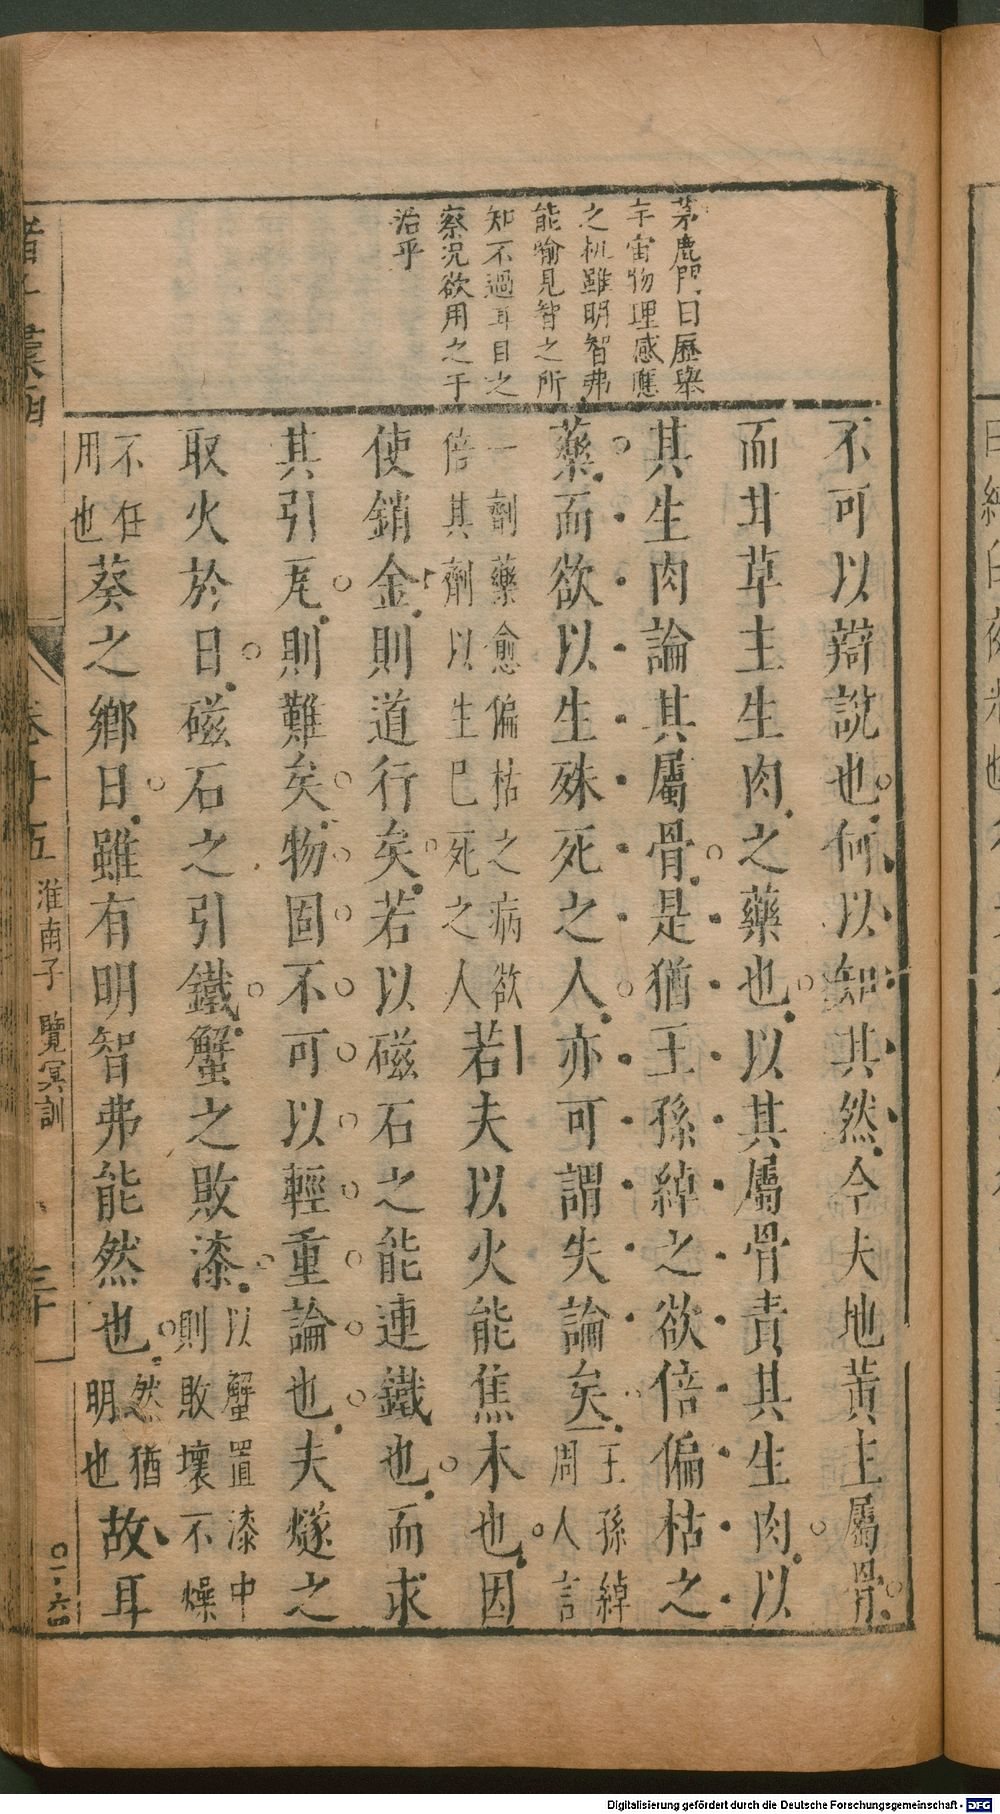 茅鹿門曰歷舉
宇宙物理感應
之机雖明智弗
能喻見智之所
知不過耳目之
察况欲用之于
治乎
不可以辯說也何以知其然今夫地黃主屬骨
而甘草主生肉之藥也以其屬骨責其生肉以
其生肉論其屬骨是猶王孫綽之欲倍偏枯之
藥而欲以生殊死之人亦可謂失論矣王孫綽
周人言
一劑藥愈偏枯之病欲
倍其劑以生已死之人若夫以火能焦木也因
使銷金則道行矣若以磁石之能連鐵也而求
其引瓦則難矣物固不可以輕重論也夫燧之
取火於日磁石之引鐵蟹之敗漆以蟹置漆中
則敗壞不燥
不任
用也葵之鄉日雖有明智弗能然也然猶
明也故耳
卷十五
淮南子
覽冥訓
三十
〇一·六四
Digitalisierung gefördert durch die Deutsche Forschungsgemeinschaft - DFG